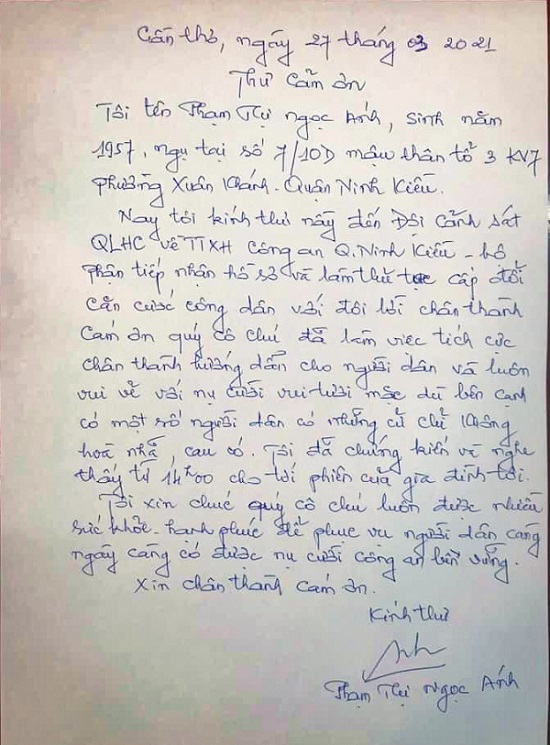 Cần thơ, ngày 27 tháng 03 2021
Thư cảm ơn
Tôi tên Phạm Thị Ngọc Ánh, sinh năm
1957, ngụ tại số 7/10D mậu thân tổ 3 KV7
phường Xuân Khánh. Quận Ninh Kiều.
Nay tôi kính thư này đến Đội cảnh sát
QLHC về TTXH công an Q. Ninh Kiều - bộ
phận tiếp nhận hồ sơ và làm thủ tục cấp đổi
căn cước công dân với đôi lời chân thành
cảm ơn quý cô chú đã làm việc tích cực
chân thành hướng dẫn cho người dân và luôn
vui vẽ với nụ cười vui tươi mặc dù bên cạnh
có một số người dân có những cử chỉ không
hoà nhã, cau có. Tôi đã chứng kiến và nghe
thấy từ 14h00 cho tới phiên của gia đình tôi.
Tôi xin chúc quý cô chú luôn được nhiều
sức khỏe - hạnh phúc để phục vụ người dân càng
ngày càng có được nụ cười công an bền vững.
Xin chân thành cảm ơn.
Kính thư
Anh
Phạm Thị Ngọc Ánh